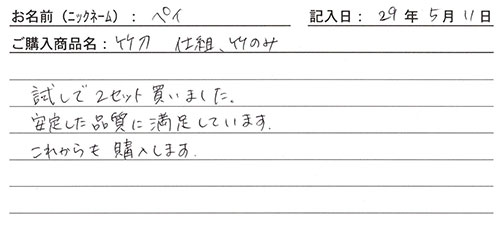 お名前（ニックネーム）： ペイ 記入日： 29年 5月 11日
ご購入商品名： 竹刀 仕組、竹のみ
試しで2セット買いました。
安定した品質に満足しています。
これからも購入します。